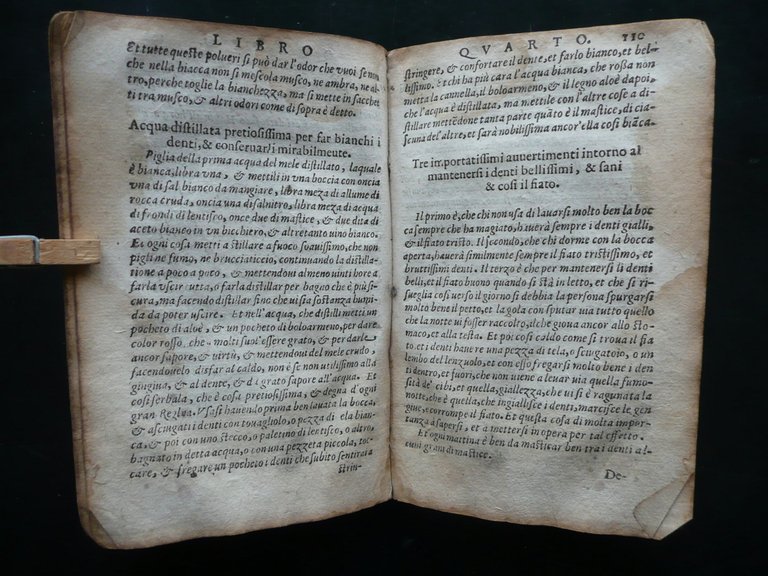 LIBRO
Et tutte queste polueri si può dar l'odor che vuoi se non
che nella biacca non si mescola musco, ne ambra, ne al-
tro, perche toglie la bianchezza, ma si mette in sacchet
ti tra musco, & altri odori come di sopra è detto.
Acqua distillata pretiosissima per far bianchi i
denti, & conseruarli mirabilmente.
Piglia della prima acqua del mele distillato, laquale
è bianca, libra vna, & mettili in vna boccia con oncia
vna di sal bianco da mangiare, libra meza di allume di
rocca cruda, oncia vna di salnitro, libra meza di acqua
di frondi di lentisco, once due di mastice, & due dita di
aceto bianco in vn bicchiero, & altretanto vino bianco.
Et ogni cosa metti a stillare a fuoco soauissimo, che non
pigli ne fumo, ne bruciaticcio, continuando la distilla-
tione a poco a poco, & mettendoui almeno uinti hore a
farla vscir tutta, o farla distillar per bagno che è più si-
cura, ma facendo distillar fino che ui sia sostanza humi-
da da poter uscire. Et nell'acqua, che distilli metti un
pochetto di aloè, & un pochetto di boloarmeno, per dare
color rosso che a molti suol'essere grato, & per darle
ancor sapore, & virtù, & mettendoui del mele crudo,
facendouelo disfar al caldo, non è se non utilissimo alla
gingiua, & al dente, & dà grato sapore all'acqua. Et
cosi serbala, che è cosa pretiosissima, & degna d'ogni
gran Regina. Vsasi hauendo prima ben lauata la bocca,
& asciugati i denti con touagliolo, o pezza di tela bianca,
& poi con uno stecco, o paletino di lentisco, o altro,
bagnato in detta acqua, o con una pezzeta piccola, toc-
care, & fregare un pocheto i denti che subito sentirai a
strin-
QVARTO. 110
stringere, & confortare il dente, et farlo bianco, et bel-
lissimo. Et chi ha più cara l'acqua bianca, che roßa non
metta la cannella, il boloarmeno, & il legno aloè dapoi,
che l'acqua è distillata, ma mettile con l'altre cose a di-
stillare mettēdone tanta parte quāto è il mastice, di cia-
scuna del'altre, et sarà nobilissima ancor'ella cosi biāca.
Tre importātissimi auuertimenti intorno al
mantenersi i denti bellissimi, & sani
& cosi il fiato.
Il primo è, che chi non usa di lauarsi molto ben la boc
ca sempre che ha magiato, hauerà sempre i denti gialli,
& il fiato tristo. Il secondo, che chi dorme con la bocca
aperta, hauerà similmente sempre il fiato tristissimo, et
bruttissimi denti. Il terzo è che per mantenersi li denti
belli, et il fiato buono quando si stà in letto, et che si ri-
sueglia cosi uerso il giorno si debbia la persona spurgarsi
molto bene il petto, et la gola con sputar uia tutto quello
che la notte ui fosser raccolto, ilche gioua ancor allo sto-
maco, et alla testa. Et poi cosi caldo come si troua il fia
to, et i denti hauere una pezza di tela, o sciugatoio, o un
lembo del lenzuolo, et con esso fregarsi molto bene i den
ti dentro, et fuori, che non uiene a leuar uia quella fumo-
sità de' cibi, et quella, giallezza, che ui si è ragunata la
notte, che è quella, che ingiallisce i denti, marcisce le gen
giue, e corrompe il fiato. Et questa cosa di molta impor-
tanza a sapersi, et a mettersi in opera per tal effetto.
Et ogni mattina è ben da masticar ben tra i denti al-
cuni grani di mastice.
De-